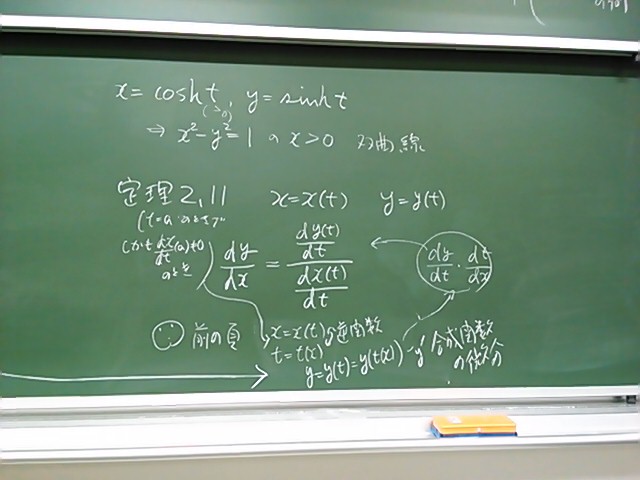 x = cosh t, y = sinh t
(>0)
⇒ x²-y²=1 の x>0 双曲線
定理2,11 x=x(t) y=y(t)
(t=a のとき
しかも dx/dt (a)≠0
のとき
dy/dx = (dy(t)/dt)/(dx(t)/dt)
dy/dt · dt/dx
前の頁
x=x(t)の逆函数
t=t(x)
y=y(t)=y(t(x))
合成函数
の微分